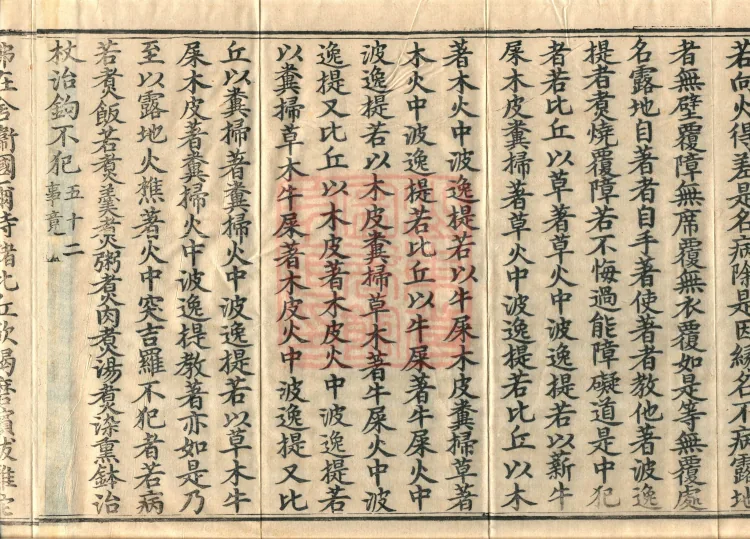 若向火得差是名病除是因緣名不病露地
者無壁覆障無席覆無衣覆如是等無覆處
名露地自著者自手著使著者教他著波逸
提者煑燒覆障若不悔過能障礙道是中犯
者若比丘以草著草火中波逸提若以薪牛
屎木皮糞掃著草火中波逸提若比丘以木
著木火中波逸提若以牛屎木皮糞掃草著
木火中波逸提若比丘以牛屎著牛屎火中
波逸提若以木皮糞掃草木著牛屎火中波
逸提又比丘以木皮著木皮火中波逸提若
以糞掃草木牛屎著木皮火中波逸提又比
丘以糞掃著糞掃火中波逸提若以草木牛
屎木皮著糞掃火中波逸提教著亦如是乃
至以露地火樵著火中突吉羅不犯者若病
若煑飯若煑羹煑粥煑肉煑湯煑染熏鉢治
杖治鉤不犯五十二事竟
佛在舍衛國爾時諸比丘欲羯磨擯跋難陀